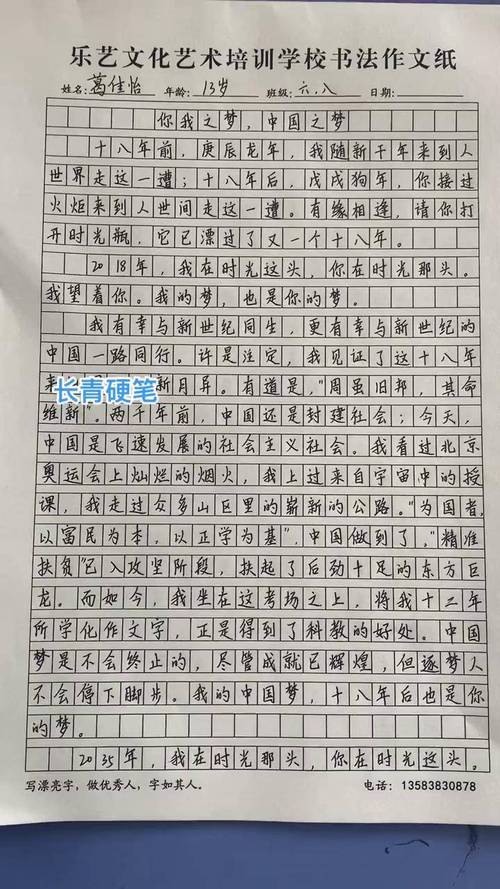 乐艺文化艺术培训学校书法作文纸
姓名:葛佳怡 年龄:13岁 班级:六.八 日期:
你我之梦,中国之梦
十八年前,庚辰龙年,我随新千年来到人
世界走这一遭;十八年后,戊戌狗年,你接过
火炬来到人世间走这一遭。有缘相逢,请你打
开时光瓶,它已漂过了又一个十八年。
2018年,我在时光这头,你在时光那头。
我望着你。我的梦,也是你的梦。
我有幸与新世纪同生,更有幸与新世纪的
中国一路同行。许是注定,我见证了这十八年
来 新月异。有道是,"周虽旧邦,其命
维新"。两千年前,中国还是封建社会;今天,
中国是飞速发展的社会主义社会。我看过北京
奥运会上灿烂的烟火,我上过来自宇宙中的授
课,我走过众多山区里的崭新的公路。"为国者,
以富民为本,以正学为基",中国做到了,"精准
扶贫"已入攻坚阶段,扶起了后劲十足的东方巨
龙。而如今,我坐在这考场之上,将我十二年
所学化作文字,正是得到了科教的好处。中国
梦是不会终止的,尽管成就已辉煌,但逐梦人
不会停下脚步。我的中国梦,十八年后也是你
的梦。
2035年,我在时光那头,你在时光这头。
写漂亮字,做优秀人,字如其人。 电话:13583830878
长青硬笔